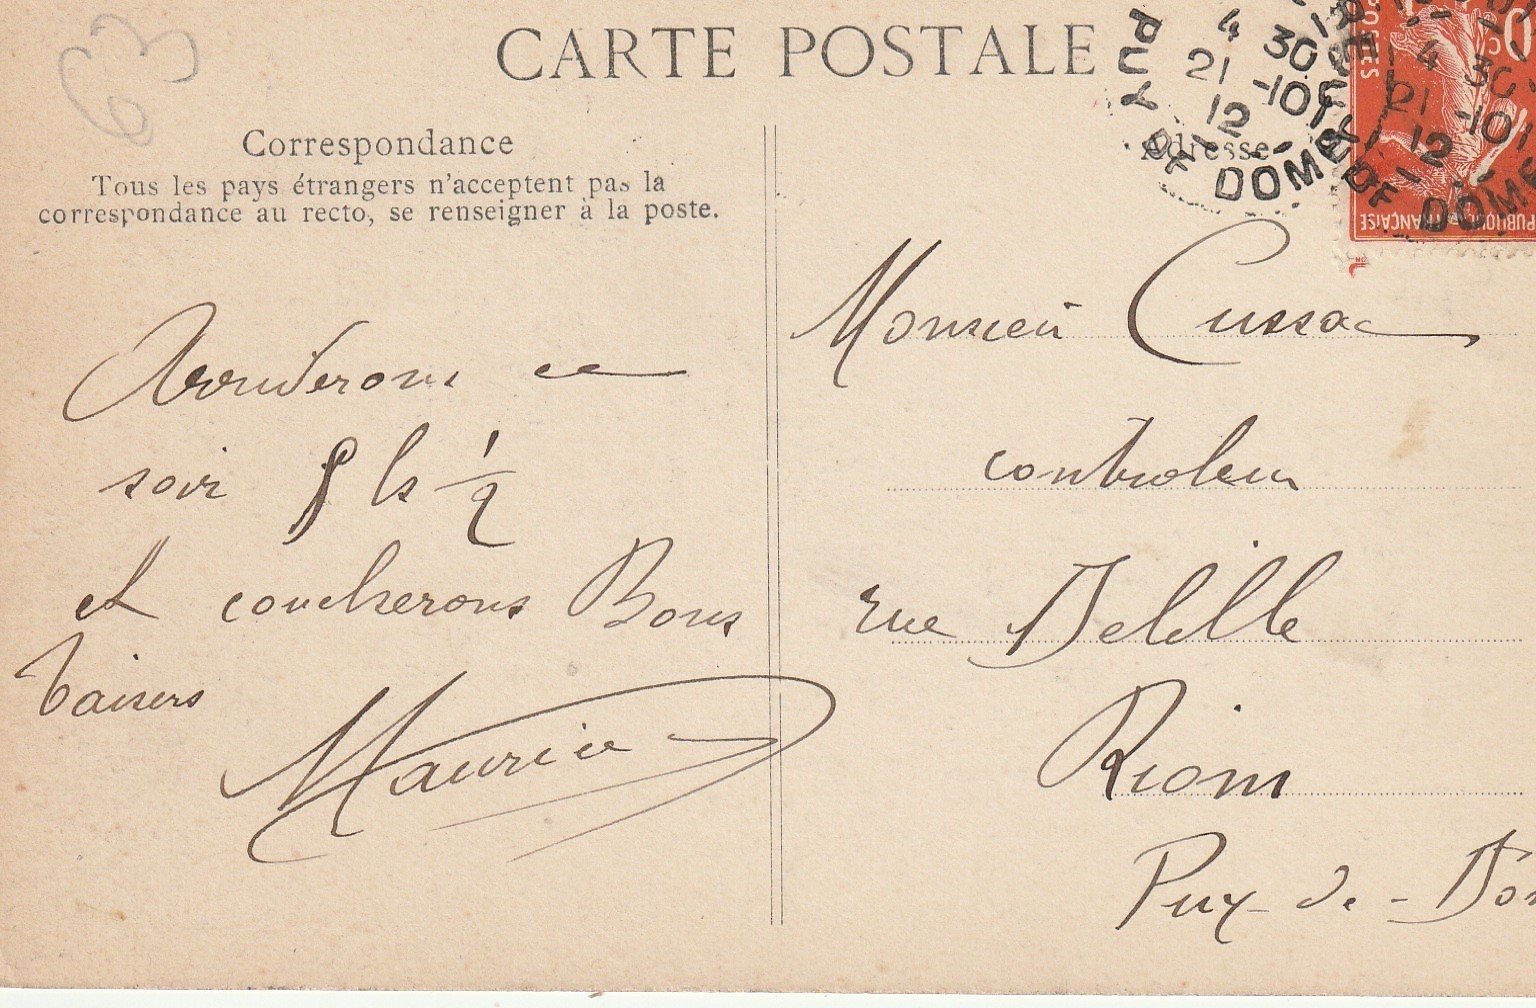 63
CARTE POSTALE
Correspondance
Tous les pays étrangers n'acceptent pas la
correspondance au recto, se renseigner à la poste.
Adresse
4 30
21 -10
12
PUY DE DOME
4 30
21 -10
12
DE DOME
POSTES
10
FRANÇAISE
Arriverons ce
soir 8 hs 1/2
et coucherons Bons
baisers
Maurice
Monsieur Cussac
controleur
rue Delille
Riom
Puy-de-Dom